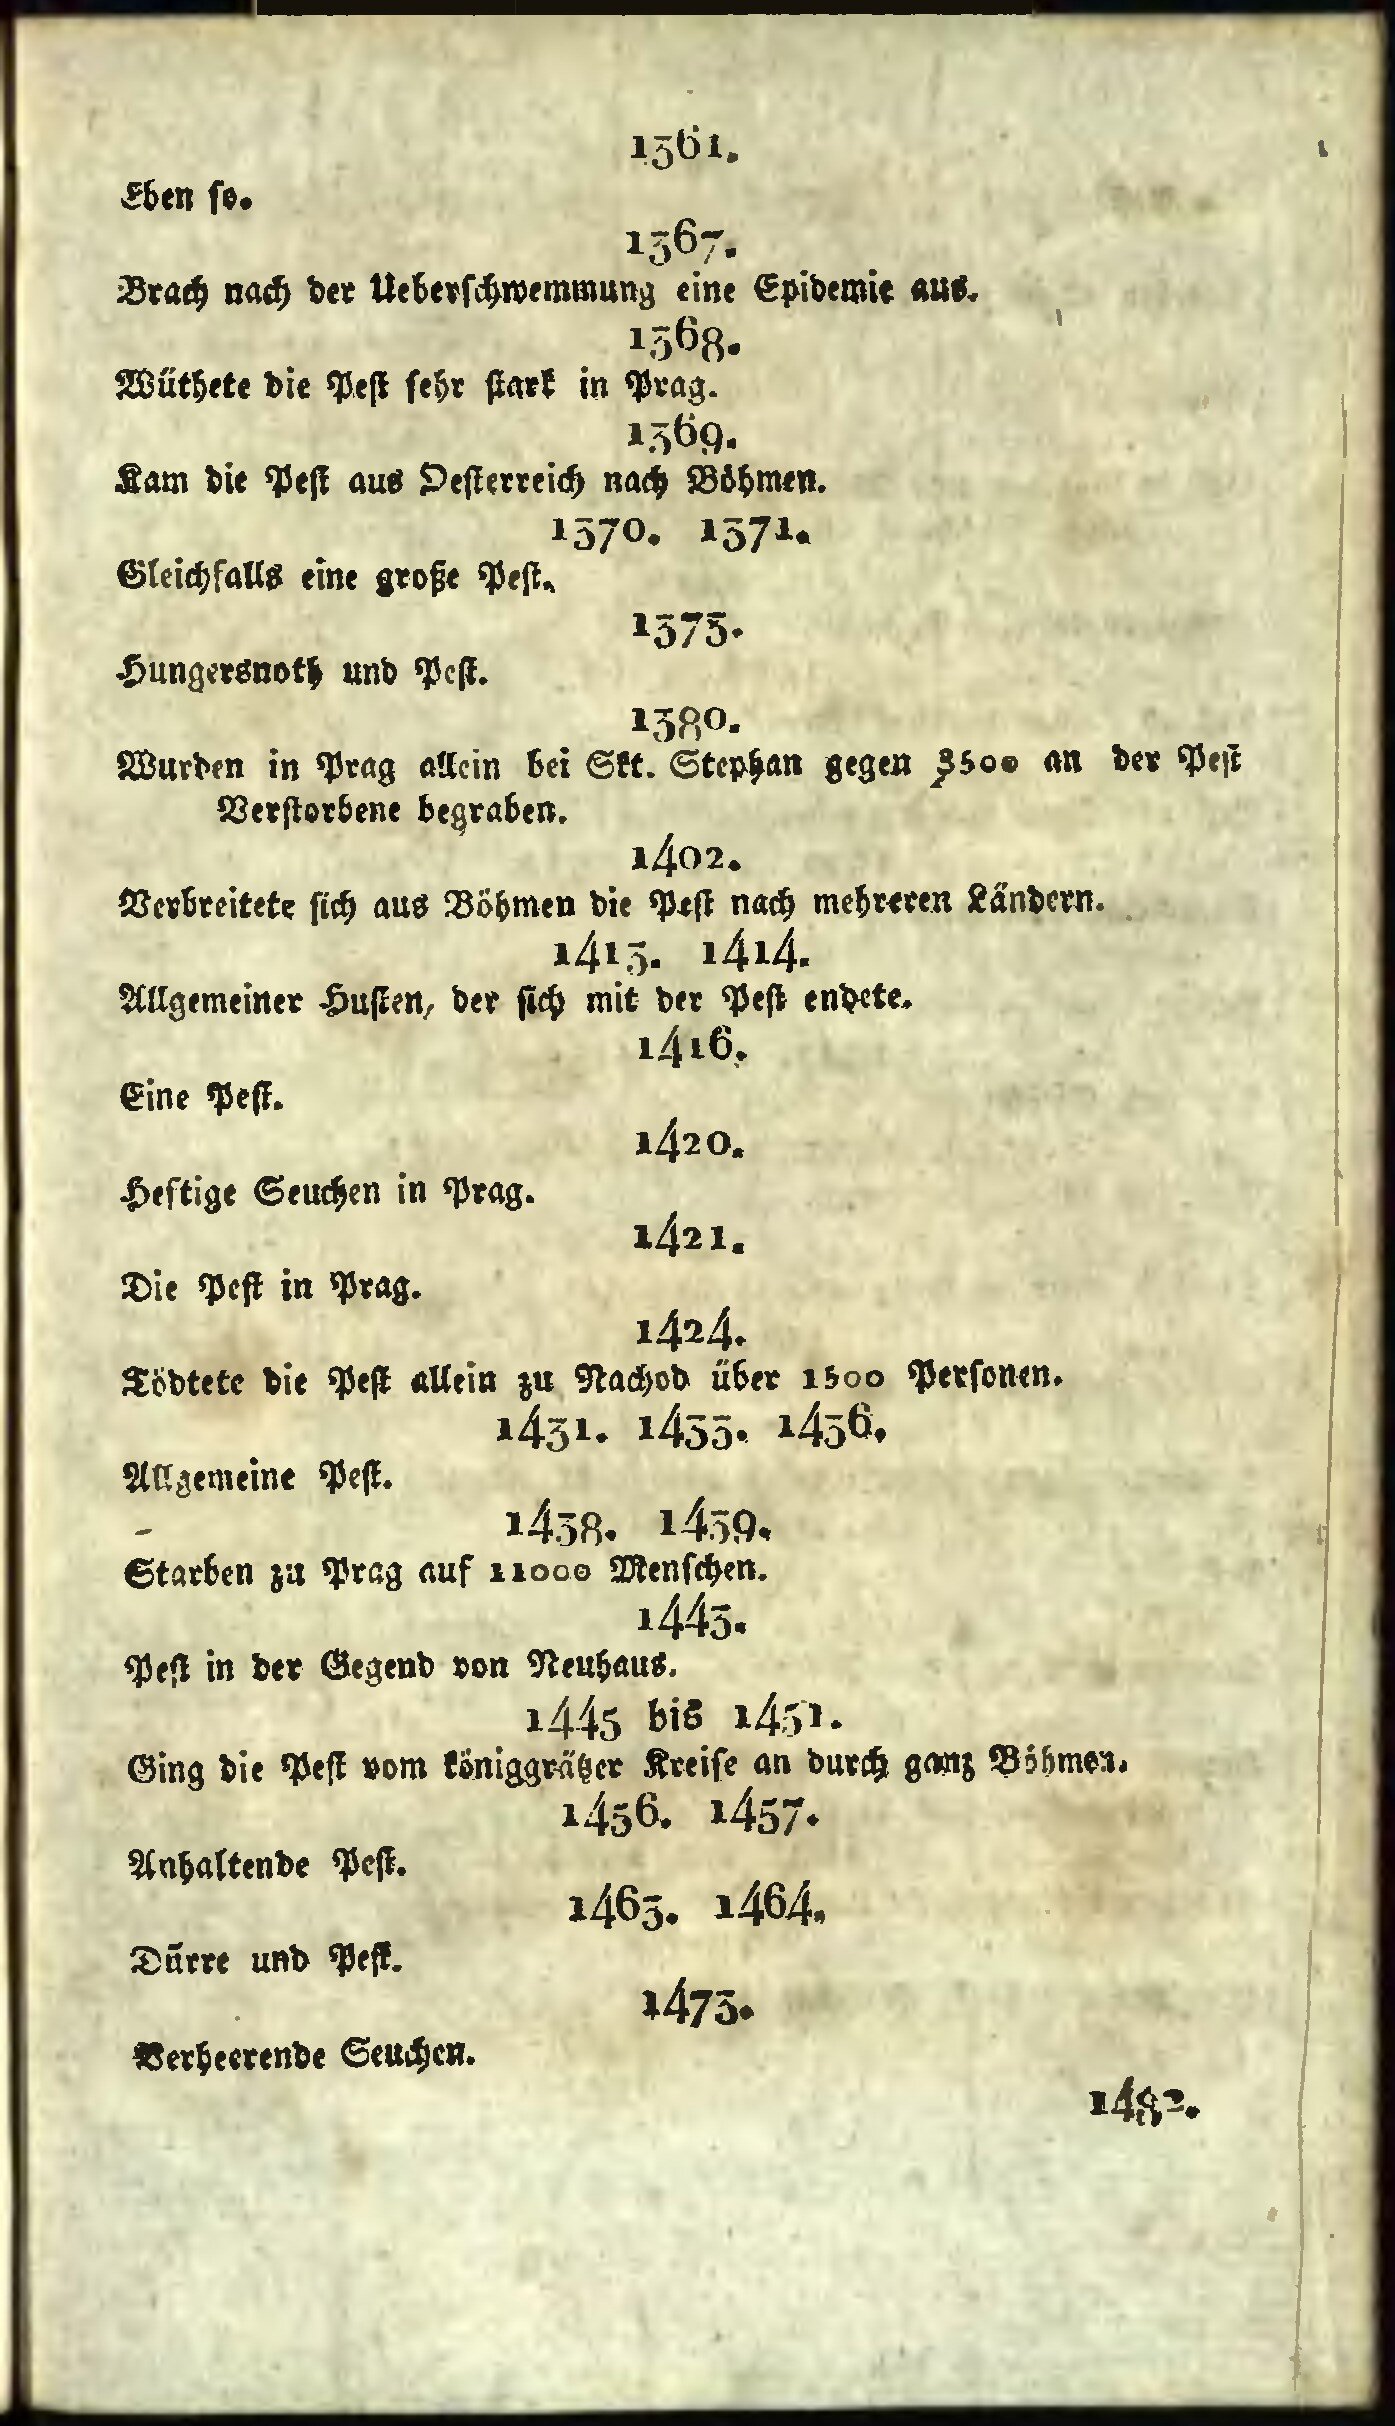 1361.
Eben so.
1367.
Brach nach der Ueberschwemmung eine Epidemie aus.
1368.
Wüthete die Pest sehr stark in Prag.
1369.
Kam die Pest aus Oesterreich nach Böhmen.
1370. 1371.
Gleichfalls eine große Pest.
1373.
Hungersnoth und Pest.
1380.
Wurden in Prag allein bei Skt. Stephan gegen 3500 an der Pest
Verstorbene begraben.
1402.
Verbreitete sich aus Böhmen die Pest nach mehreren Ländern.
1413. 1414.
Allgemeiner Husten, der sich mit der Pest endete.
1416.
Eine Pest.
1420.
Heftige Seuchen in Prag.
1421.
Die Pest in Prag.
1424.
Tödtete die Pest allein zu Nachod über 1500 Personen.
1431. 1433. 1436.
Allgemeine Pest.
1438. 1439.
Starben zu Prag auf 11000 Menschen.
1443.
Pest in der Gegend von Neuhaus.
1445 bis 1451.
Ging die Pest vom königgrätzer Kreise an durch ganz Böhmen.
1456. 1457.
Anhaltende Pest.
1463. 1464.
Dürre und Pest.
1473.
Verheerende Seuchen.
1482.